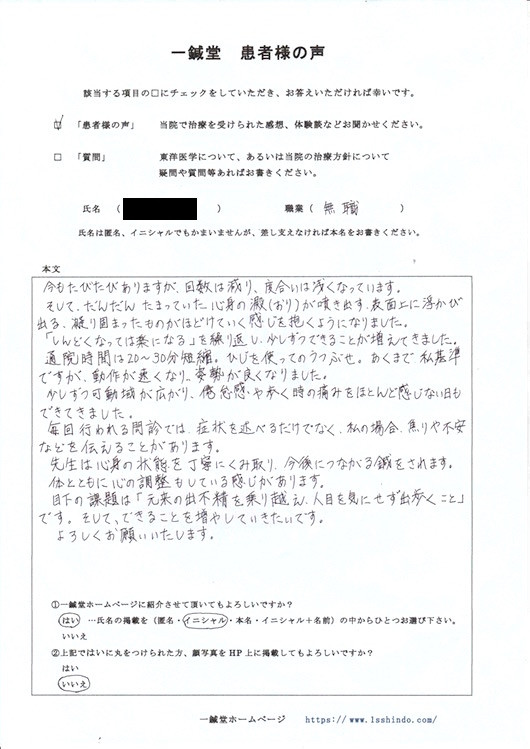 一鍼堂 患者様の声
該当する項目の□にチェックをしていただき、お答えいただければ幸いです。
☑ 「患者様の声」 当院で治療を受けられた感想、体験談などお聞かせください。
□ 「質問」 東洋医学について、あるいは当院の治療方針について
疑問や質問等あればお書きください。
氏名 ( ) 職業 ( 無職 )
氏名は匿名、イニシャルでもかまいませんが、差し支えなければ本名をお書きください。
本文
今もたびたびありますが、回数は減り、度合いは浅くなっています。
そして、だんだん たまっていた心身の澱(おり)が噴き出す、表面上に浮かび
出る、凝り固まったものがほどけていく感じを抱くようになりました。
「しんどくなっては楽になる」を繰り返し、少しずつできることが増えてきました。
通院時間は20〜30分短縮。ひじを使ってのうつぶせ。あくまで私基準
ですが、動作が速くなり、姿勢が良くなりました。
少しずつ可動域が広がり、倦怠感や歩く時の痛みをほとんど感じない日も
でてきました。
毎回行われる問診では、症状を述べるだけでなく、私の場合、焦りや不安
などを伝えることがあります。
先生は心身の状態を丁寧にくみ取り、今後につながる鍼をされます。
体とともに心の調整もしている感じがあります。
目下の課題は「元来の出不精を乗り越え、人目を気にせず出歩くこと」
です。そして、できることを増やしていきたいです。
よろしくお願いいたします。
①一鍼堂ホームページに紹介させて頂いてもよろしいですか?
はい …氏名の掲載を(匿名・イニシャル・本名・イニシャル+名前)の中からひとつお選び下さい。
いいえ
②上記ではいに丸をつけられた方、顔写真をHP上に掲載してもよろしいですか?
はい
いいえ
一鍼堂ホームページ https://www.1sshindo.com/